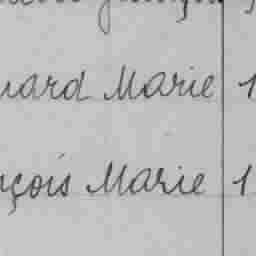 uard Marie 1
nçois Marie 1